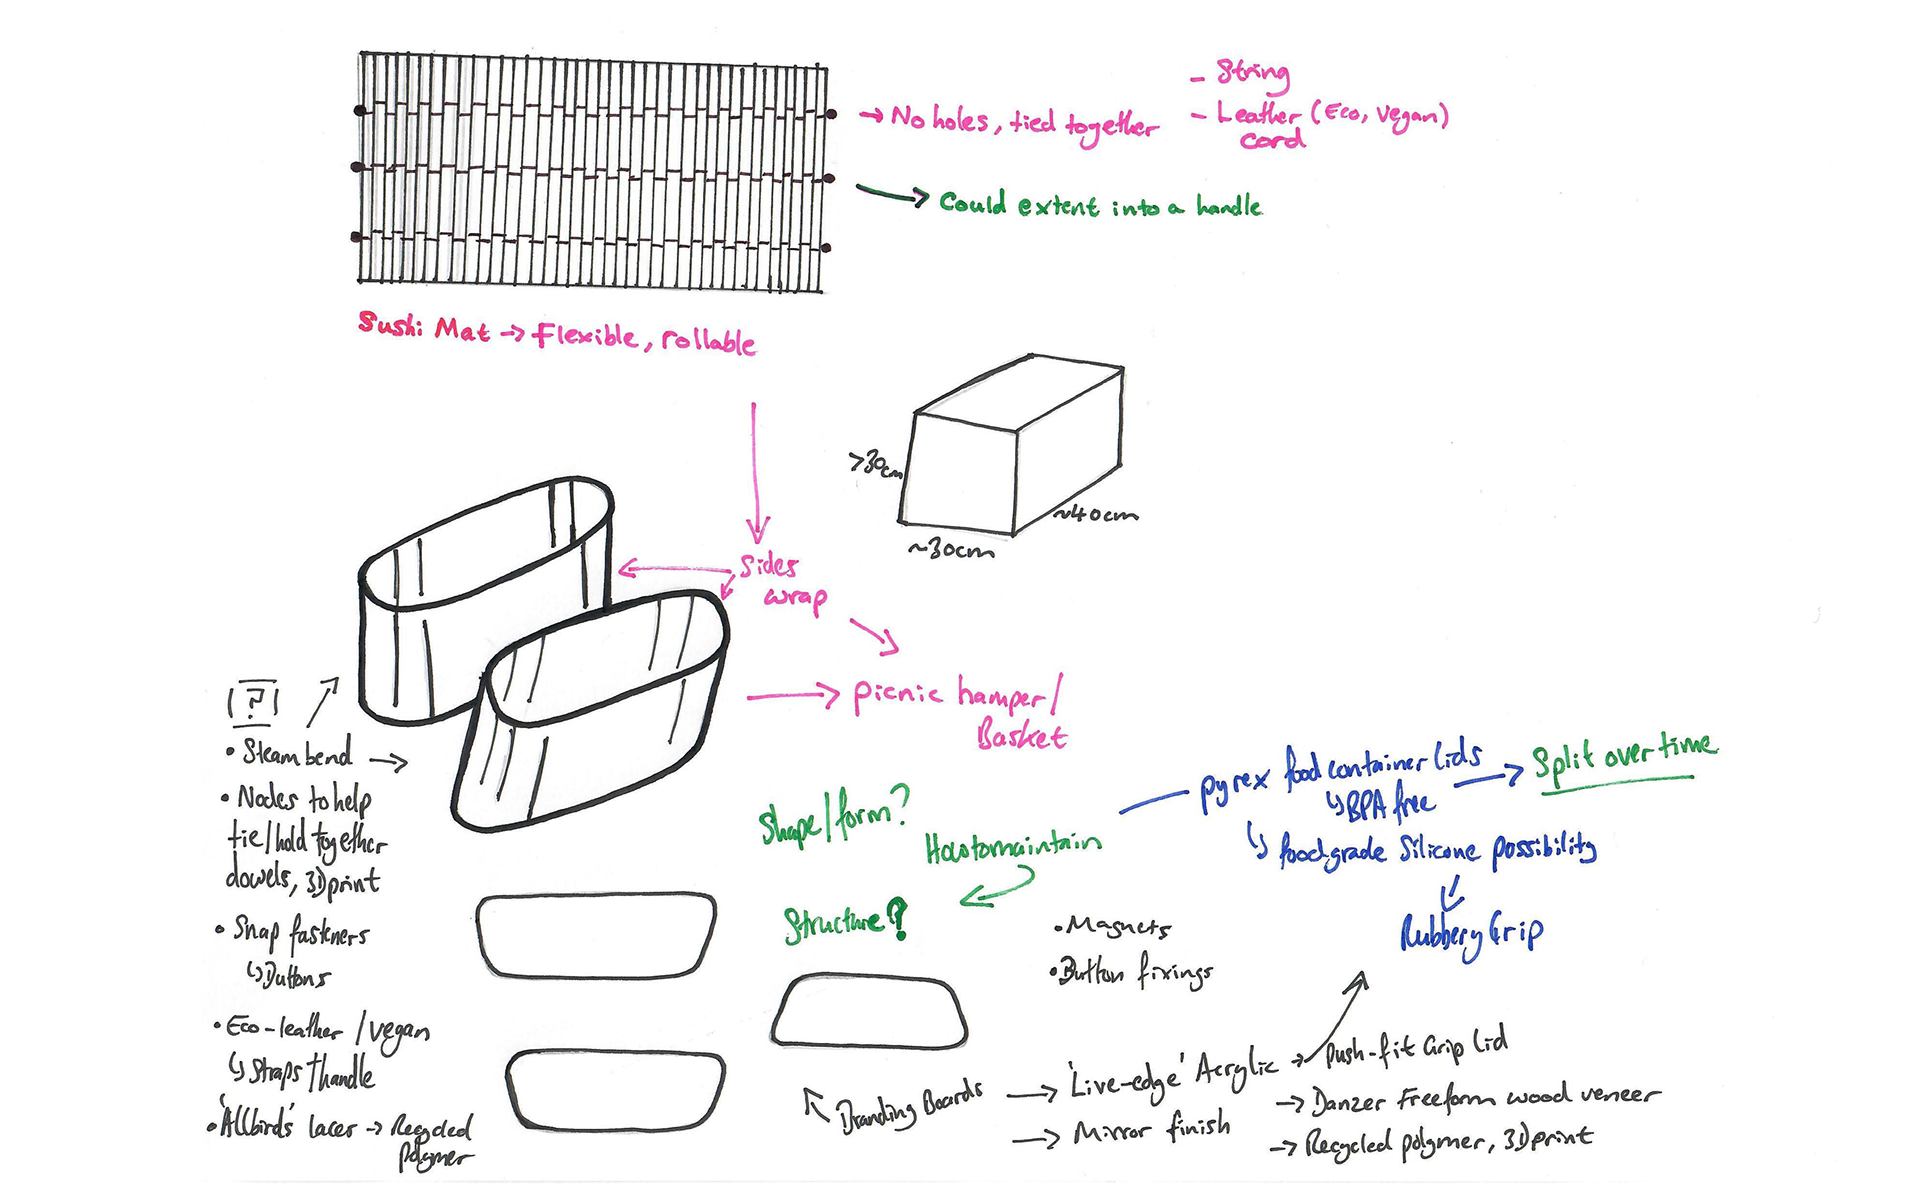 → No holes, tied together
- String
- Leather (Eco, vegan)
cord
→ Could extent into a handle
Sushi Mat → Flexible, rollable
>30cm
~40cm
~30cm
Sides
wrap
→ picnic hamper/
Basket
|?|
• Steam bend →
• Nodes to help
tie/hold together
dowels, 3D print
• Snap fasteners
↳ Buttons
• Eco-leather/vegan
↳ Straps + handle
• 'Allbirds' laces → Recycled
polymer
Shape/form?
How to maintain
Structure?
• Magnets
• Button fixings
pyrex food container lids → Split over time
↳ BPA free
↳ food grade Silicone possibility
Rubbery Grip
Branding Boards → 'Live-edge' Acrylic → Push-fit Grip Lid
→ Mirror finish
→ Danzer Freeform wood veneer
→ Recycled polymer, 3D print